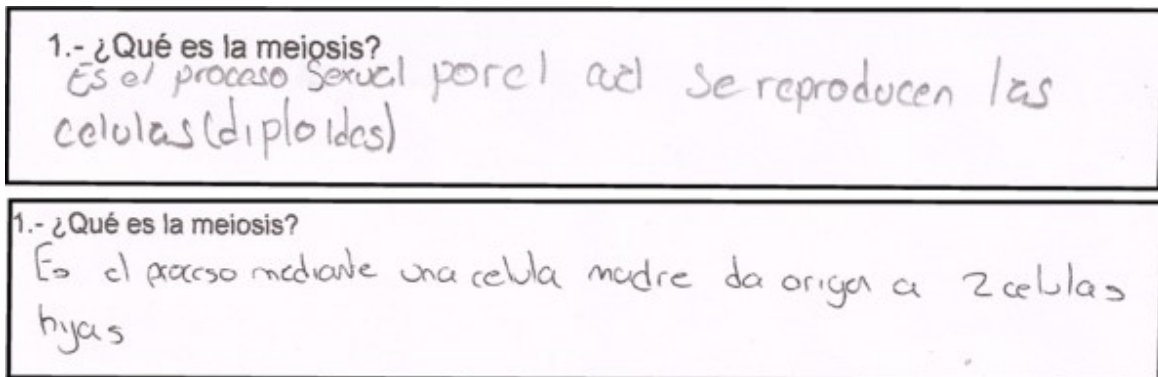 1.- ¿Qué es la meiosis?
Es el proceso sexual por el cual se reproducen las
celulas (diploides)
1.- ¿Qué es la meiosis?
Es el proceso mediante una celula madre da origen a 2 celulas
hijas